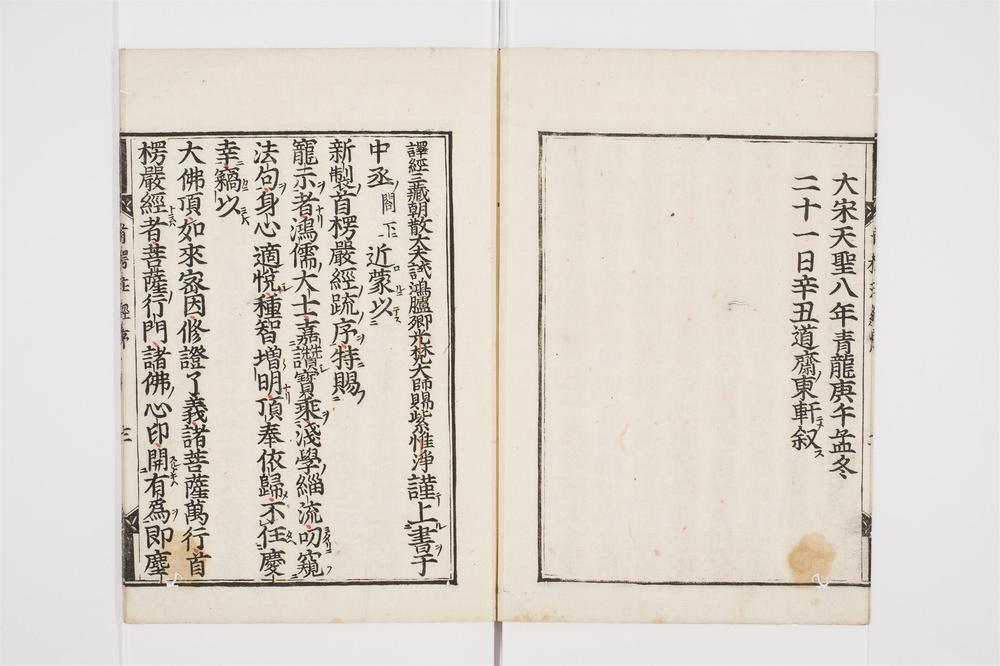 大宋天聖八年青龍庚午孟冬
二十一日辛丑道齋東軒叙
譯經三藏朝散大夫試鴻臚卿光梵大師賜紫惟淨謹上書于
中丞閤下近蒙以
新製首楞嚴經疏序特賜
寵示者鴻儒大士嘉讚寶乘淺學緇流叨窺
法句身心適悅種智增明頂奉依歸不任慶
幸竊以
大佛頂如來宻因修證了義諸菩薩萬行首
楞嚴經者菩薩行門諸佛心印開有爲即塵